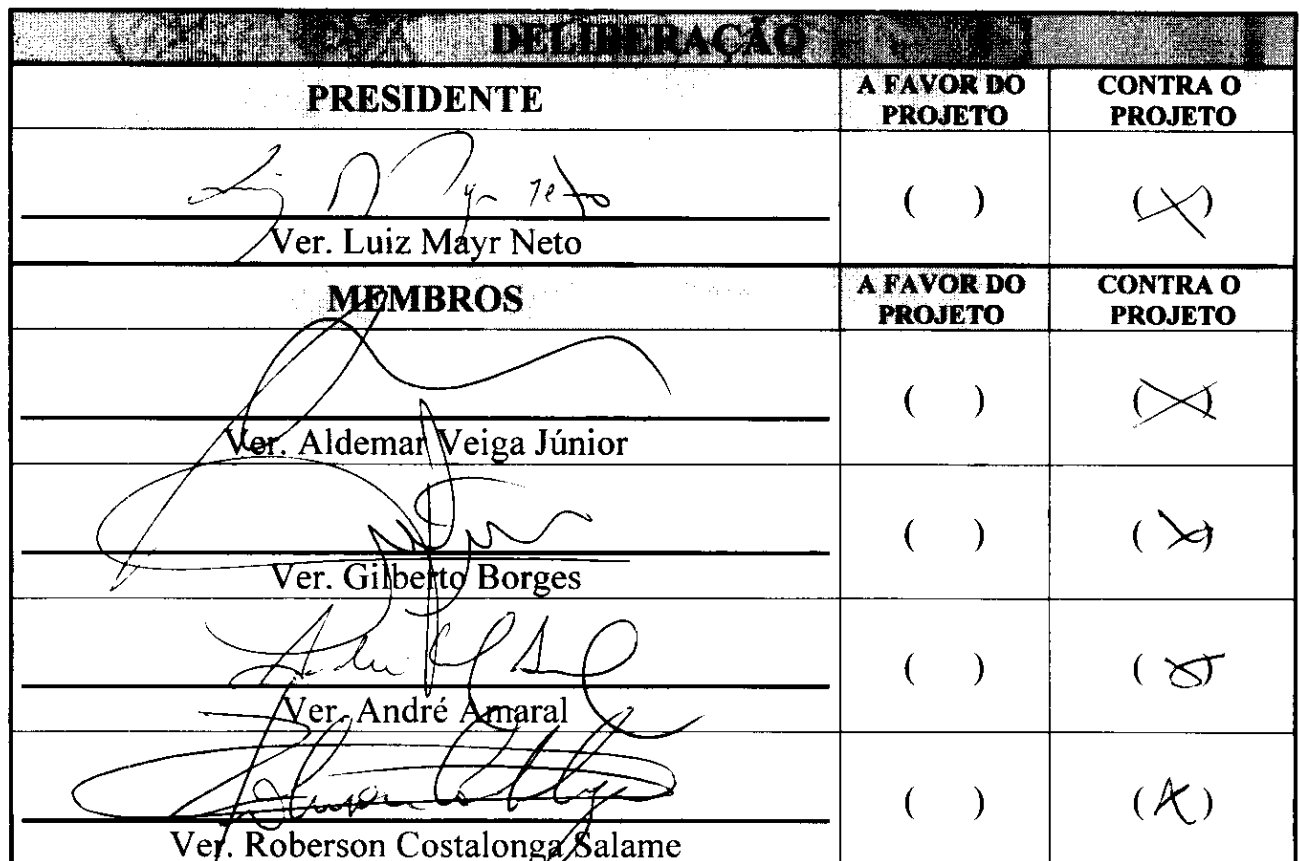 DELIBERAÇÃO
PRESIDENTE A FAVOR DO PROJETO CONTRA O PROJETO
( ) (X)
Ver. Luiz Mayr Neto
MEMBROS A FAVOR DO PROJETO CONTRA O PROJETO
( ) (X)
Ver. Aldemar Veiga Júnior
( ) (X)
Ver. Gilberto Borges
( ) (X)
Ver. André Amaral
( ) (X)
Ver. Roberson Costalonga Salame